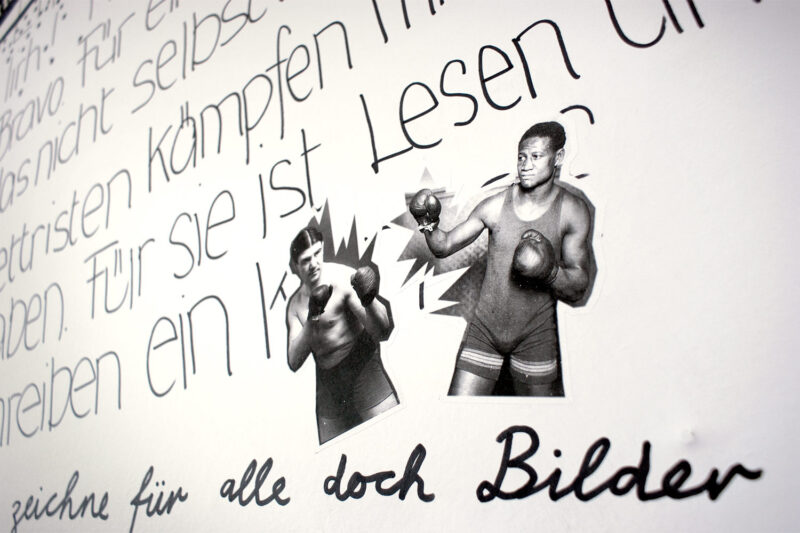 Bravo. Für ei
das nicht selbs
ettristen kämpfen m
aben. Für sie ist Lesen un
hreiben ein K
zeichne für alle doch Bilder